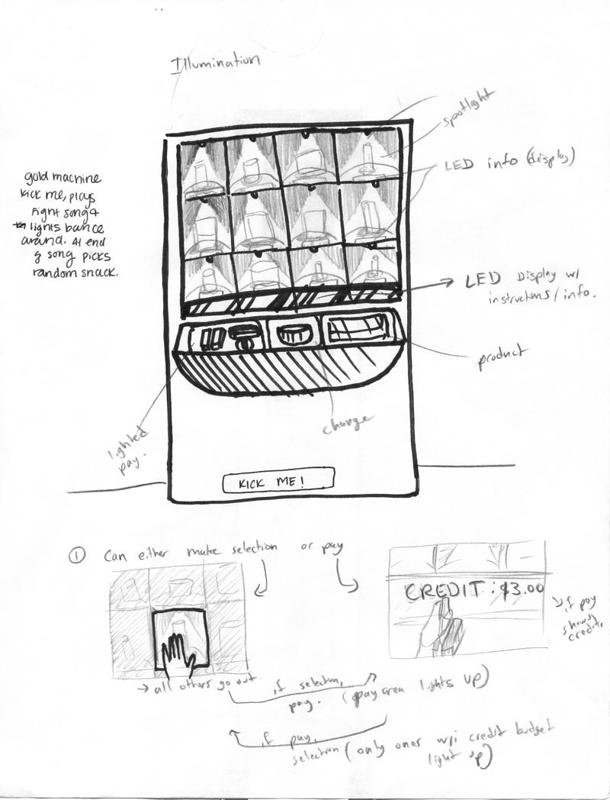 Illumination
spotlight
LED info (display)
gold machine
kick me, plays
fight song &
lights bounce
around. At end
of song picks
random snack.
LED Display w/
instructions/info.
product
lighted
pay.
change
KICK ME!
① Can either make selection or pay
CREDIT: $3.00
→ if pay
shows
credits
→ all others go out
if selection,
pay. (pay area lights up)
if pay,
selection (only ones w/i credit budget
light up)